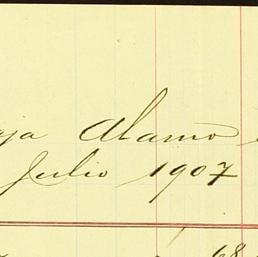 aja Alamo
Julio 1907
68